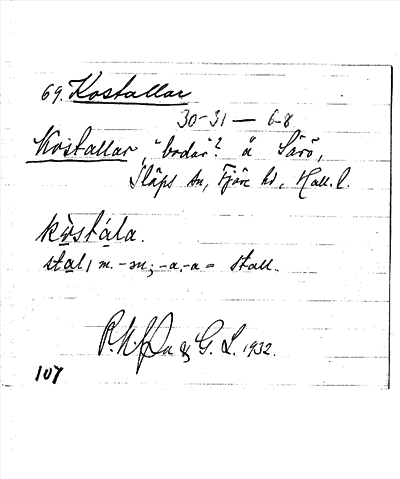 69. Kostallar
30-31 — 6-8
Kostallar, "bodar"? å Särö,
Släps sn, Fjäre hd, Hall. l.
kòstála.
stal, m. -en; -a -a = stall.
& G. L. 1932.
107